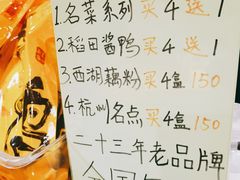 1.名菜系列买4送1
2.稻田酱鸭买4送1
3.西湖藕粉买4盒150
4.杭州名点买4盒150
二十三年老品牌
全国
酒